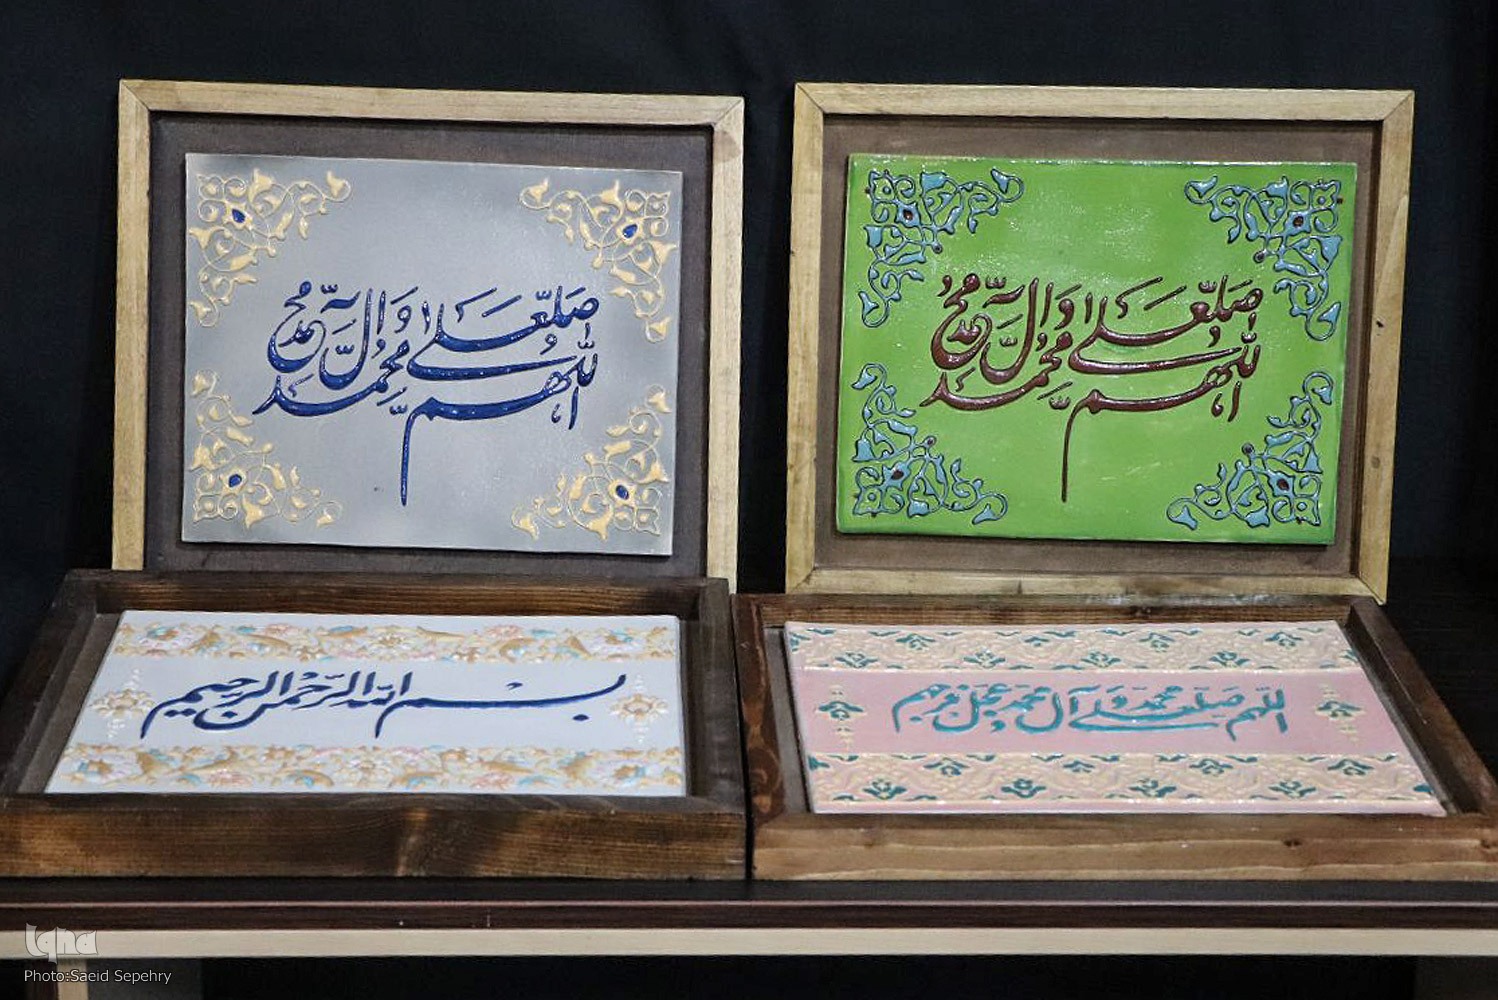 اللهم صل على محمد وآل محمد
اللهم صل على محمد وآل محمد
بسم الله الرحمن الرحيم
اللهم صل على محمد وآل محمد وعجل فرجهم
iqna
Photo:Saeid Sepehry